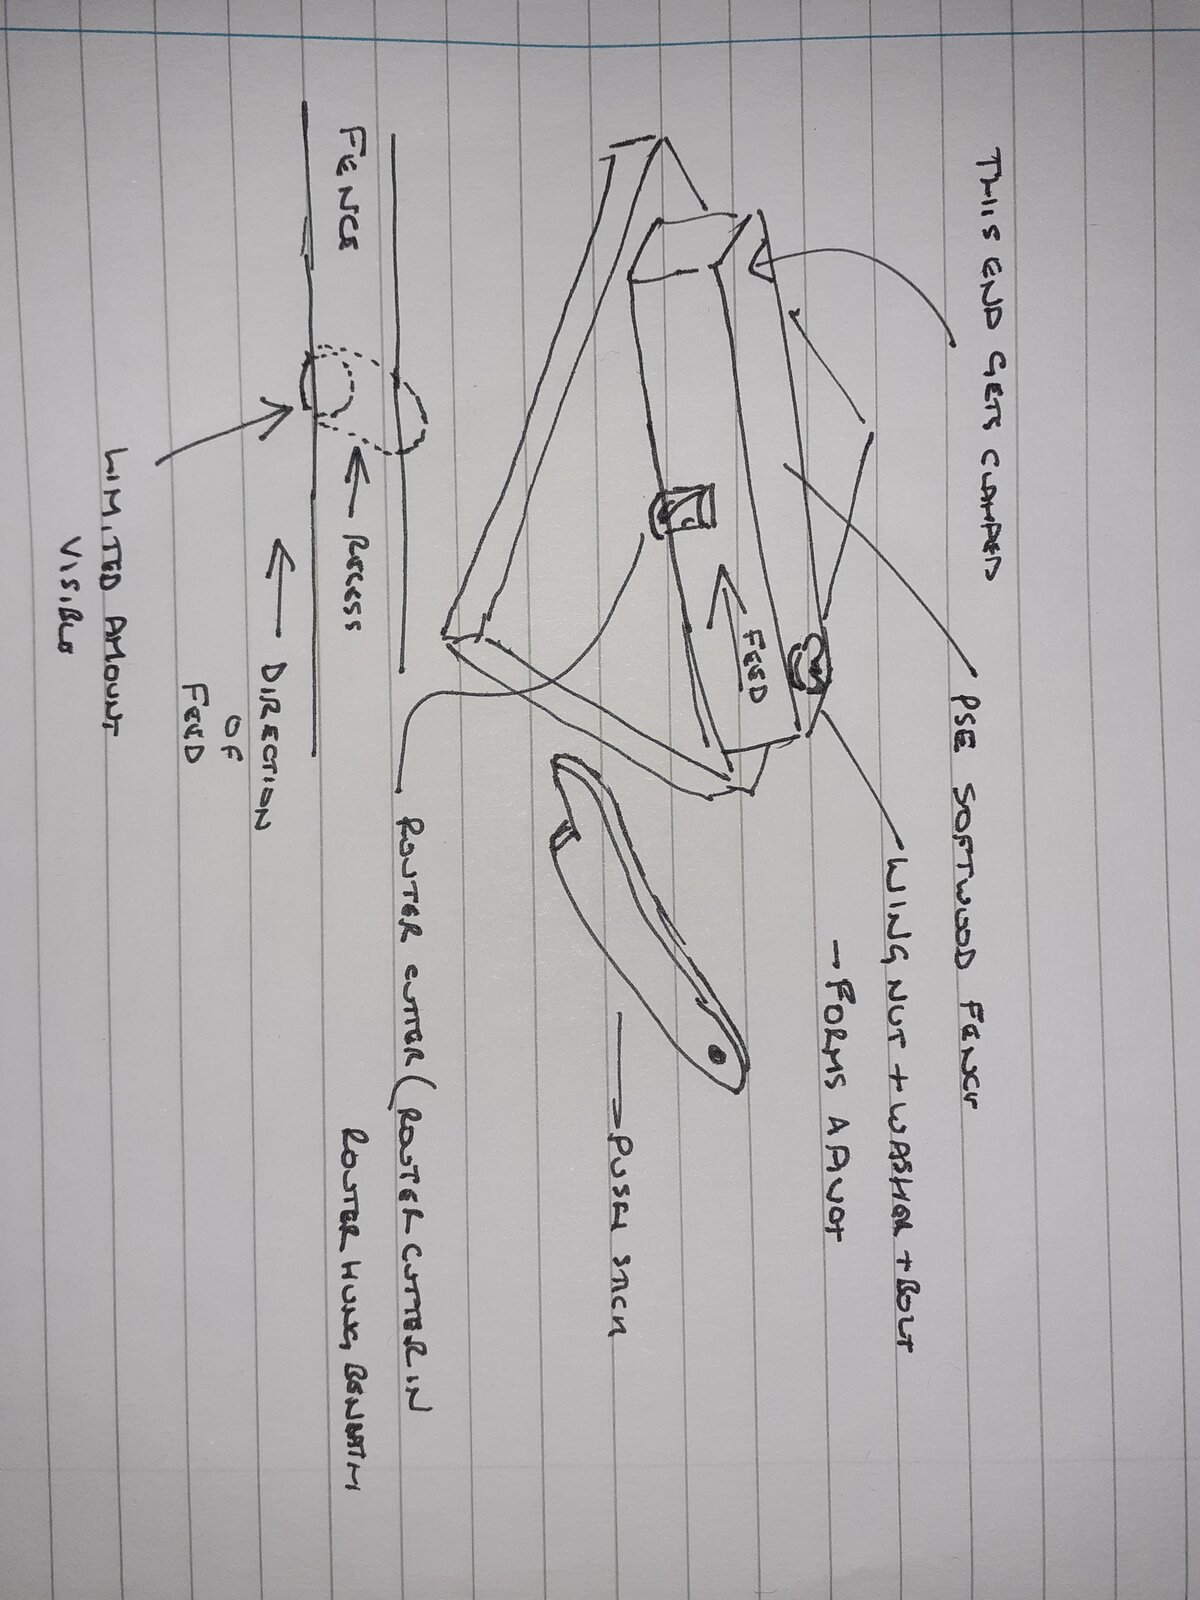 THIS END GETS CLAMPED
PSE SOFTWOOD FENCE
WING NUT + WASHER + BOLT
→ FORMS A PIVOT
FEED
PUSH STICK
ROUTER CUTTER (ROUTER CUTTER IN
ROUTER HUNG BENEATH
FENCE
← RECESS
← DIRECTION
OF
FEED
LIMITED AMOUNT
VISIBLE